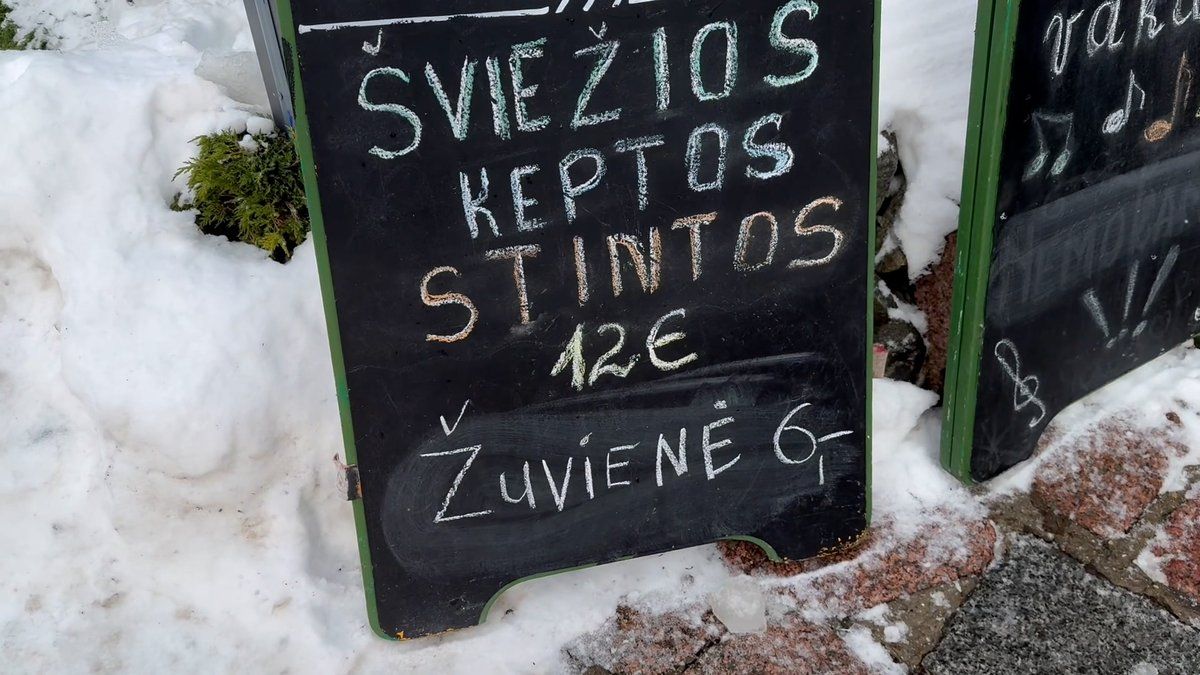 ŠVIEŽIOS
KEPTOS
STINTOS
12€
ŽUVIENĖ 6,-